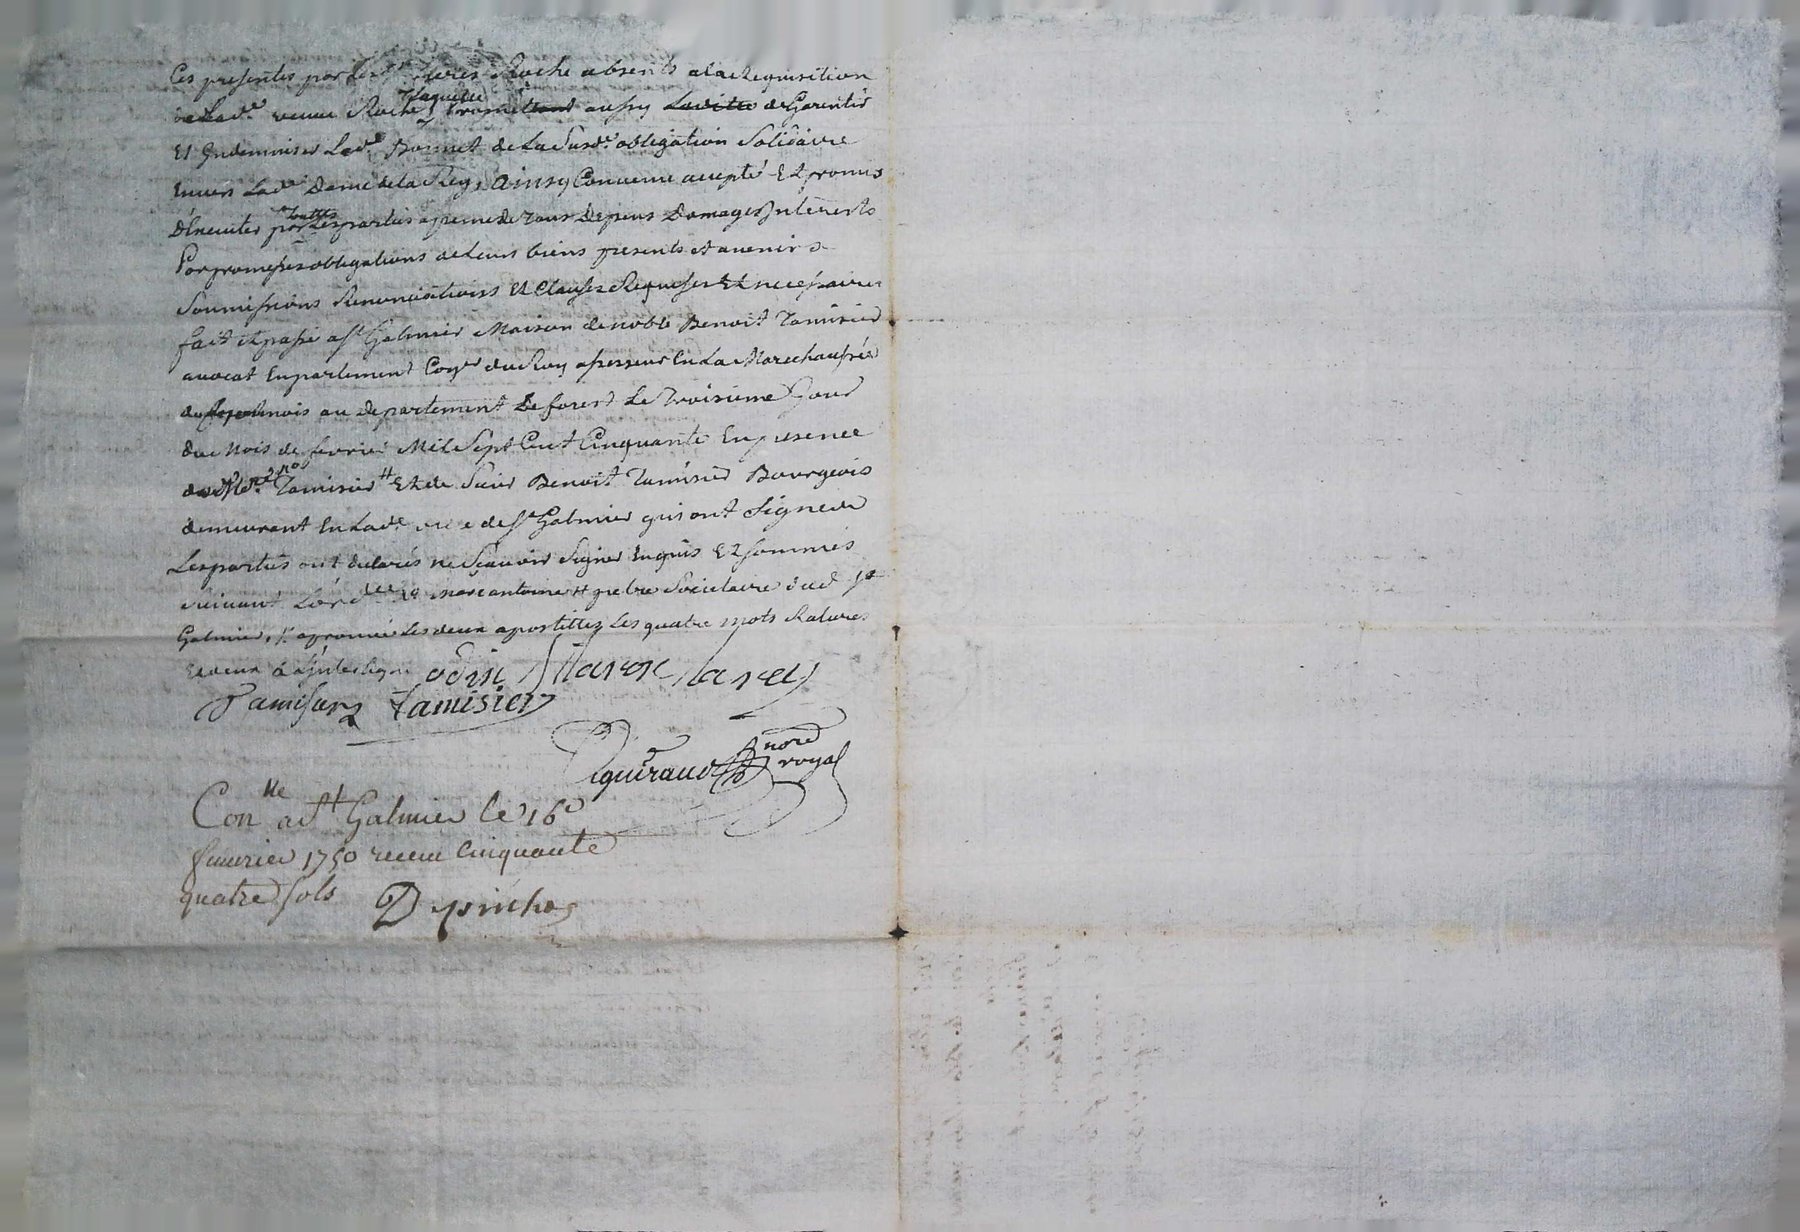 Ces presentes par lesd. freres Roche absents a la requisition
de lad.e veuve Roche laquelle promettant aussy de Garentir
Et Indemniser led. Bonnet de La Susd.e obligation Solidaire
Envers Lad.e Dame de la Rey, Ainsy Convenu accepté Et promis
D'Executer par touttes Lesparties a peine de tous depens Domages Interests
Par promesses obligations de Leurs biens presents et avenirs
Soumissions Renonciations Et Clauses Requises Et necessaires
fait et passé a St Galmier Maison de noble Benoit Tamisier
avocat En parlement Coger du Roy assesseur En La Marechaussée
du Lyonnois au Departement de forest Le Troisieme Jour
du Mois de fevrier Mil Sept Cent Cinquante En presence
de Mre Tamisier # Et de Sieur Benoit Tamisier Bourgeois
demeurant En Lad.e ville de St Galmier qui ont Signé
Les parties ont declarés ne Scavoir Signer Enquis Et Sommés
suivant L'ord.ce # marc antoine # prebtre Societaire dud. St
Galmier, J'aprouve Les deux apostilles Les quatre mots Ratures
Et deux a L'interligne odin
Tamisier
Piguraud nore
royal
Con lle a St Galmier le 16e
feuvrier 1750 receu Cinquante
quatre sols Depinhac